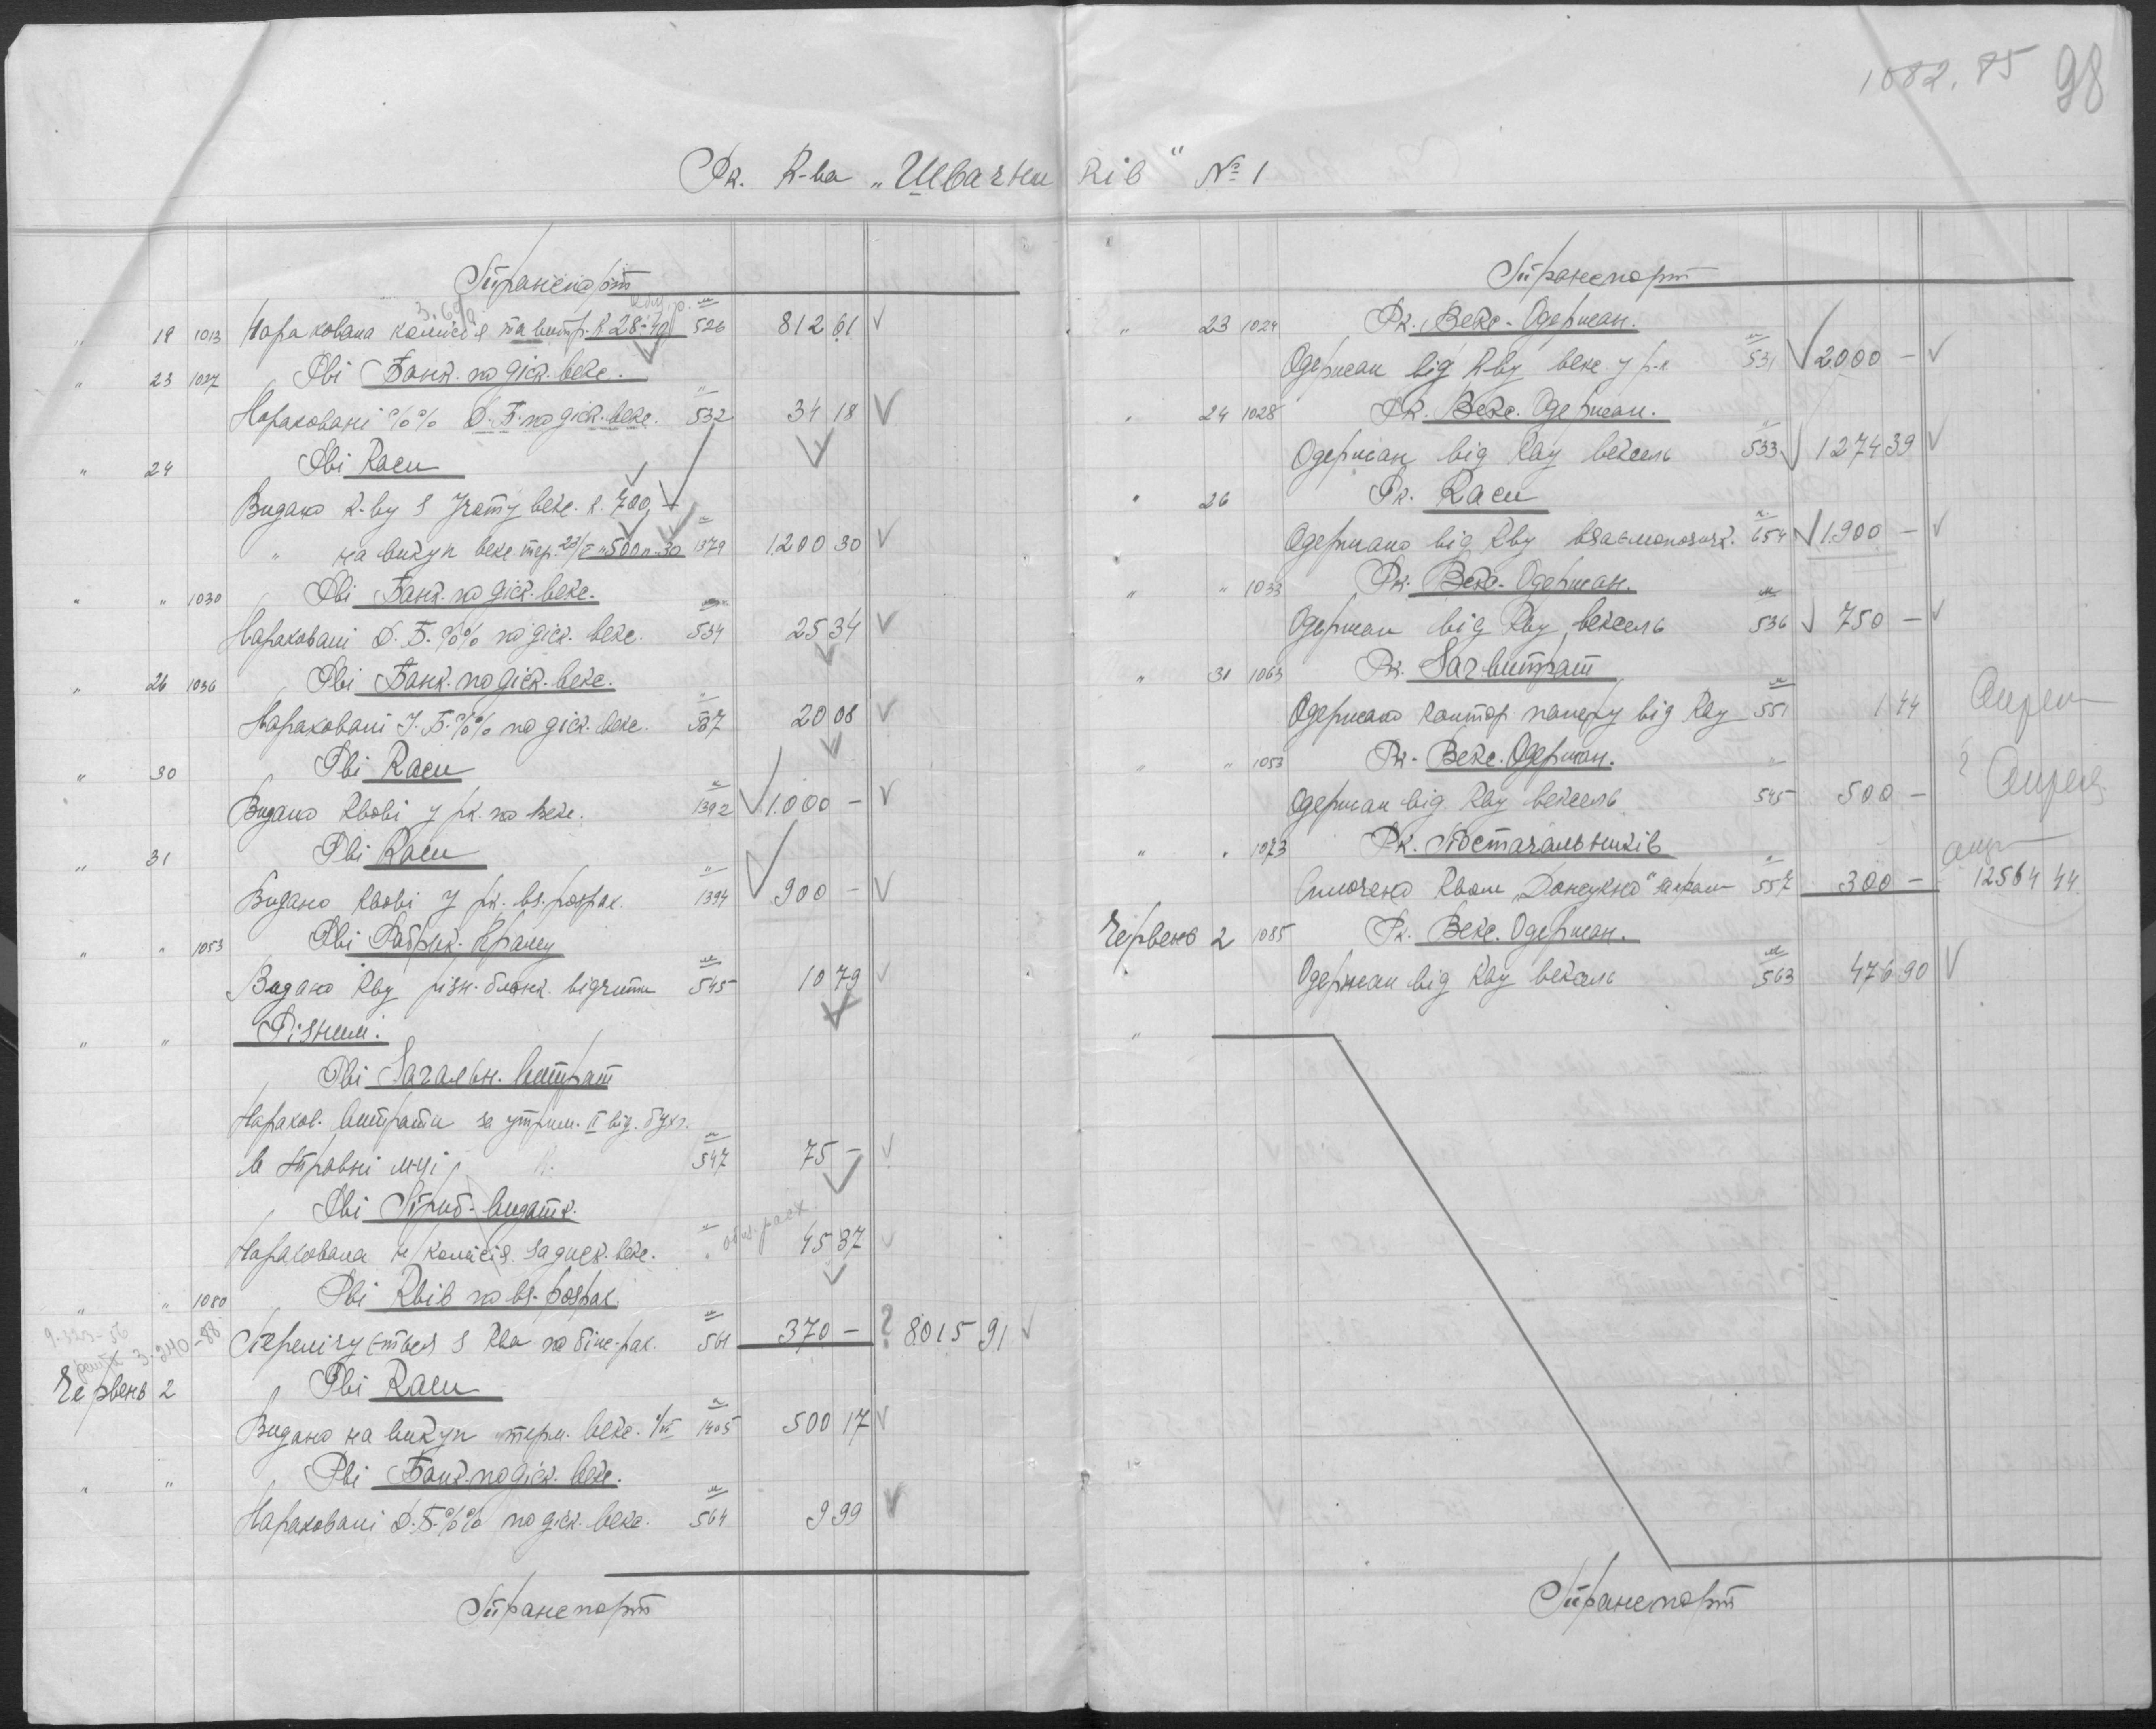 1082.85 98
Рк. К-ва „Швачни ків" № 1
Транспорт
" 19 1013 Нарахована комісія та витр. К 28-40 526 812 61 V
" 23 1027 Рві Банк. по діск. векс.
Нараховані %% Д. Б. по діск. векс. 532 34 18 V
" 24 Рві Каси
Видано К-ву з учоту векс. к. 700,-
" на викуп векс. тер. 23/V „ 500 п-30 1379 1.200 30 V
" " 1030 Рві Банк. по діск. векс.
Нараховані Д. Б. %% по діск. векс. 534 25 34 V
" 26 1036 Рві Банк. по діск. векс.
Нараховані У. Б. %% по діск. векс. 537 20 08 V
" 30 Рві Каси
Видано Квові у рк. по векс. 1392 1.000 - V
" 31 Рві Каси
Видано Квові у рк. вз. розрах. 1394 900 - V
" " 1053 Рві Фабрик. Краму
Видано Кву різн. бланк. відчити 545 10 79 V
" " Різним.
Рві Загальн. Витрат
Нарахов. витрати за утрим. II від. бухг.
в травні м-ці 547 75 - V
Рві Приб.-видатк.
Нарахована комісія за диск. векс. " 45 37 V
" " 1080 Рві Квів по вз. розрах.
Перелічується з Ква по біж. рах. 561 370 - ? 8015 91 V
9.323-56
решта 3.240-88
Червень 2 Рві Каси
Видано на викуп терм. векс. 1/VI 1405 500 17 V
" " Рві Банк. по діск. векс.
Нараховані Д. Б. %% по діск. векс. 564 9 99 V
Транспорт
Транспорт
" 23 1024 Рк. Векс. Одержан.
Одержан від К-ву векс у р-к 531 2000 - V
" 24 1028 Рк. Векс. Одержан.
Одержан від Кву вексель 533 1274 39 V
" 26 Рк. Каси
Одержано від Кву взаємопозичк. 654 1.900 - V
" " 1033 Рк. Векс. Одержан.
Одержан від Кву вексель 536 750 - V
" 31 1063 Рк. Заг. витрат
Одержано контор. паперу від Кву 551 1 44
" " 1053 Рк. Векс. Одержан.
Одержан від Кву вексель 545 500 -
" " 1073 Рк. Постачальників
Сплочено Квом „Донсукно" 557 300 - 12564 44
Червень 2 1085 Рк. Векс. Одержан.
Одержан від Кву вексель 563 476 90 V
"
Транспорт